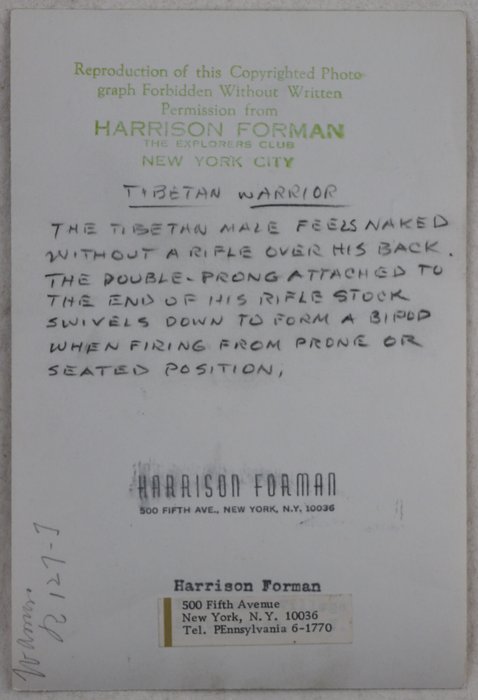 Reproduction of this Copyrighted Photo-
graph Forbidden Without Written
Permission from
HARRISON FORMAN
THE EXPLORERS CLUB
NEW YORK CITY
TIBETAN WARRIOR
THE TIBETAN MALE FEELS NAKED
WITHOUT A RIFLE OVER HIS BACK.
THE DOUBLE-PRONG ATTACHED TO
THE END OF HIS RIFLE STOCK
SWIVELS DOWN TO FORM A BIPOD
WHEN FIRING FROM PRONE OR
SEATED POSITION,
HARRISON FORMAN
500 FIFTH AVE., NEW YORK, N.Y. 10036
Harrison Forman
500 Fifth Avenue
New York, N. Y. 10036
Tel. PEnnsylvania 6-1770